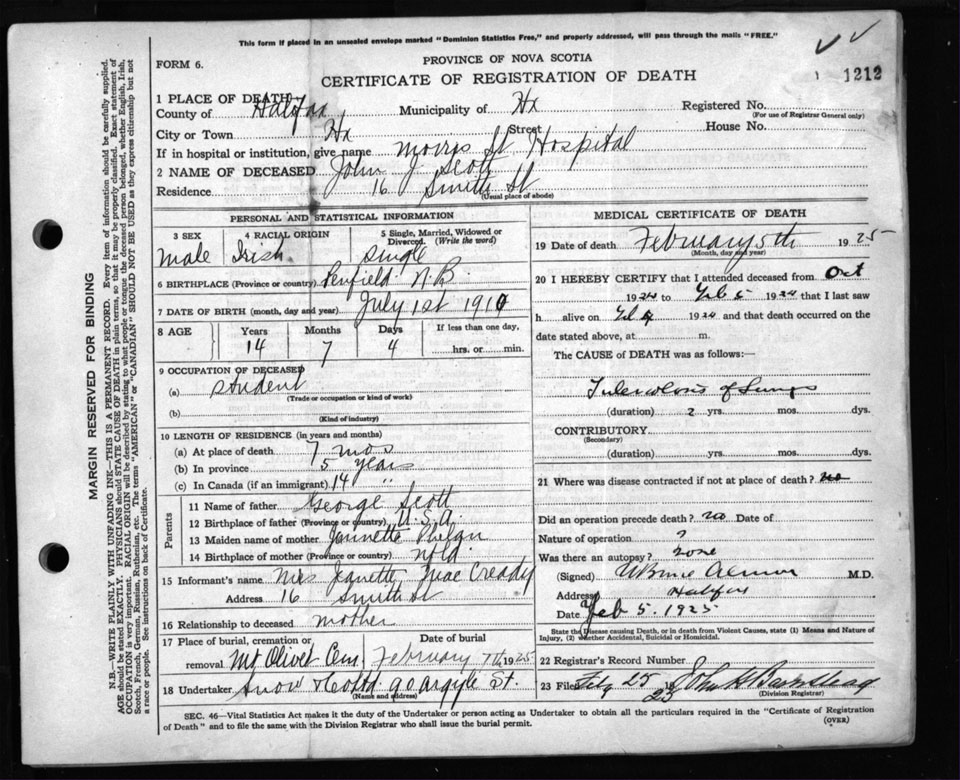 This form if placed in an unsealed envelope marked "Dominion Statistics Free," and properly addressed, will pass through the mails "FREE."
FORM 6.
PROVINCE OF NOVA SCOTIA
CERTIFICATE OF REGISTRATION OF DEATH
1212
1 PLACE OF DEATH—
County of Halifax Municipality of Hx Registered No.
(For use of Registrar General only)
City or Town Hx Street House No.
If in hospital or institution, give name Morris St Hospital
2 NAME OF DECEASED John J Scott
Residence 16 Smith St
(Usual place of abode)
PERSONAL AND STATISTICAL INFORMATION
3 SEX 4 RACIAL ORIGIN 5 Single, Married, Widowed or Divorced. (Write the word)
Male Irish Single
6 BIRTHPLACE (Province or country) Penfield N.B.
7 DATE OF BIRTH (month, day and year) July 1st 1910
8 AGE Years Months Days If less than one day,
14 7 4 hrs. or min.
9 OCCUPATION OF DECEASED
(a) Student
(Trade or occupation or kind of work)
(b)
(Kind of industry)
10 LENGTH OF RESIDENCE (in years and months)
(a) At place of death 7 mos
(b) In province 5 years
(c) In Canada (if an immigrant) 14 "
Parents
11 Name of father George Scott
12 Birthplace of father (Province or country) U.S.A.
13 Maiden name of mother Jannette Phelan
14 Birthplace of mother (Province or country) Nfld.
15 Informant's name Mrs Jeanette MacCready
Address 16 Smith St
16 Relationship to deceased mother
17 Place of burial, cremation or removal Date of burial
Mt Olivet Cem. February 7th 1925
18 Undertaker Snow & Co Ltd. 90 Argyle St.
(Name and address)
MEDICAL CERTIFICATE OF DEATH
19 Date of death February 5th 1925
(Month, day and year)
20 I HEREBY CERTIFY that I attended deceased from Oct
1924 to Feb 5 1924 that I last saw
h alive on Feb 1924 and that death occurred on the
date stated above, at m.
The CAUSE of DEATH was as follows:—
Tuberculosis of Lungs
(duration) 2 yrs. mos. dys.
CONTRIBUTORY
(Secondary)
(duration) yrs. mos. dys.
21 Where was disease contracted if not at place of death? no
Did an operation precede death? no Date of
Nature of operation ?
Was there an autopsy? none
(Signed) M.D.
Address Halifax
Date Feb 5. 1925
State the Disease causing Death, or in death from Violent Causes, state (1) Means and Nature of
Injury, (2) whether Accidental, Suicidal or Homicidal.
22 Registrar's Record Number
23 Filed Feby 25 19 25 John H Barnstead
(Division Registrar)
SEC. 46—Vital Statistics Act makes it the duty of the Undertaker or person acting as Undertaker to obtain all the particulars required in the "Certificate of Registration
of Death" and to file the same with the Division Registrar who shall issue the burial permit.
(OVER)
MARGIN RESERVED FOR BINDING
N.B.—WRITE PLAINLY WITH UNFADING INK—THIS IS A PERMANENT RECORD. Every item of information should be carefully supplied.
AGE should be stated EXACTLY. PHYSICIANS should STATE CAUSE OF DEATH in plain terms, so that it may be properly classified. Exact statement of
OCCUPATION is very important. RACIAL ORIGIN will be described by stating to what people or tongue the deceased person belonged, whether English, Irish,
Scotch, French, German, Russian, Ruthenian, etc. The terms "AMERICAN" or "CANADIAN" SHOULD NOT BE USED as they express citizenship but not
a race or people. See instructions on back of Certificate.